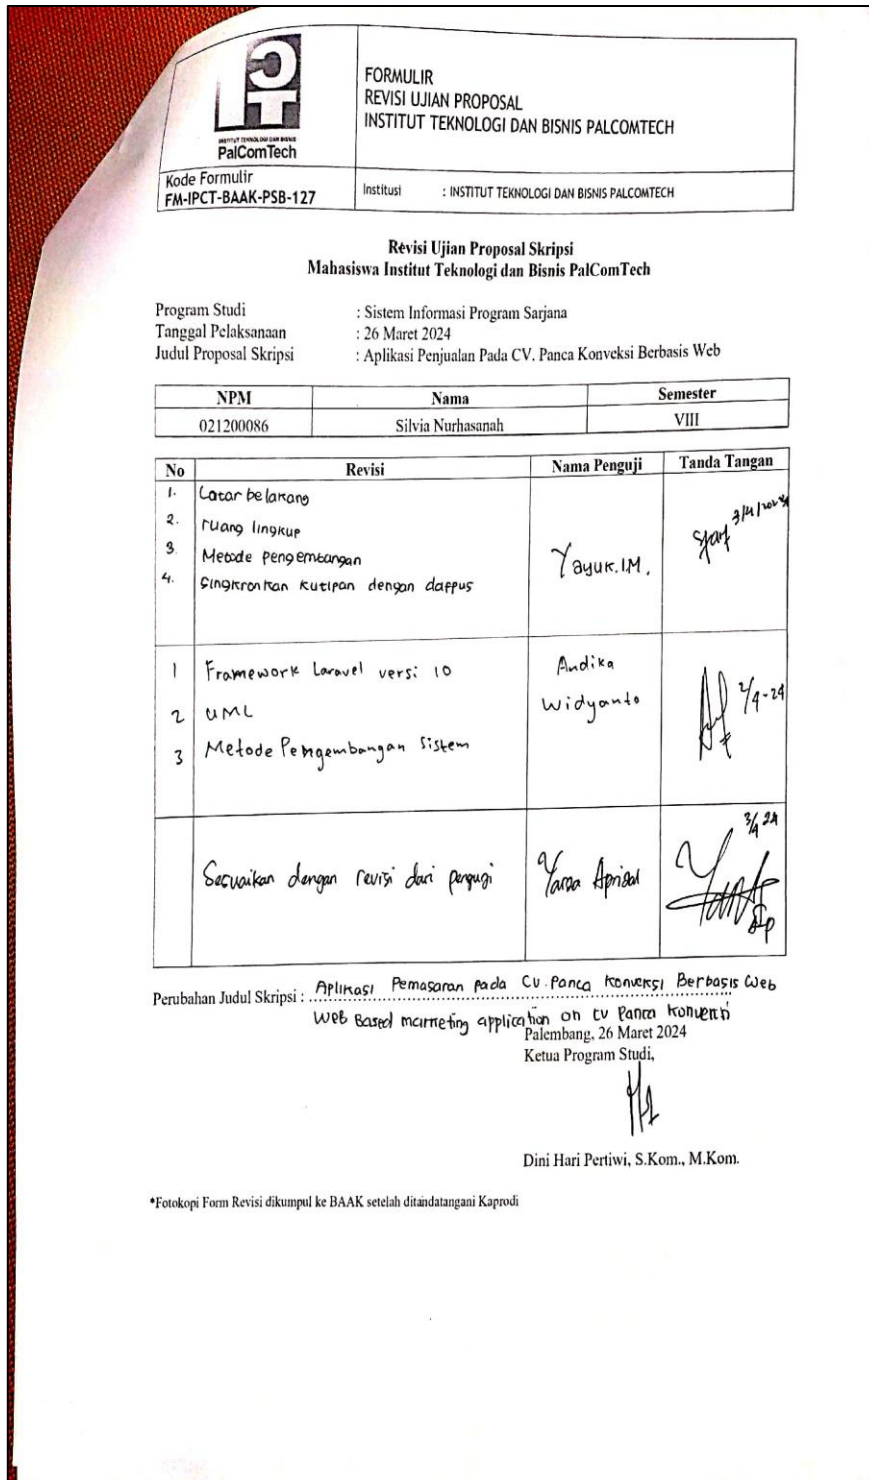 INSTITUT TEKNOLOGI DAN BISNIS
PalComTech
FORMULIR
REVISI UJIAN PROPOSAL
INSTITUT TEKNOLOGI DAN BISNIS PALCOMTECH
Kode Formulir
FM-IPCT-BAAK-PSB-127
Institusi : INSTITUT TEKNOLOGI DAN BISNIS PALCOMTECH
Revisi Ujian Proposal Skripsi
Mahasiswa Institut Teknologi dan Bisnis PalComTech
Program Studi : Sistem Informasi Program Sarjana
Tanggal Pelaksanaan : 26 Maret 2024
Judul Proposal Skripsi : Aplikasi Penjualan Pada CV. Panca Konveksi Berbasis Web
NPM Nama Semester
021200086 Silvia Nurhasanah VIII
No Revisi Nama Penguji Tanda Tangan
1. Latar belakang
2. ruang lingkup
3. Metode pengembangan
4. Singkronkan kutipan dengan dafpus
Yayuk.I.M.
3/4/2024
1 Framework Laravel versi 10
2 UML
3 Metode Pengembangan Sistem
Andika
Widyanto
2/4-24
Sesuaikan dengan revisi dari penguji
Yarza Aprizal
3/4 24
Perubahan Judul Skripsi : Aplikasi Pemasaran pada CV. Panca Konveksi Berbasis Web
Web Based marketing application on CV Panca Konveksi
Palembang, 26 Maret 2024
Ketua Program Studi,
Dini Hari Pertiwi, S.Kom., M.Kom.
*Fotokopi Form Revisi dikumpul ke BAAK setelah ditandatangani Kaprodi